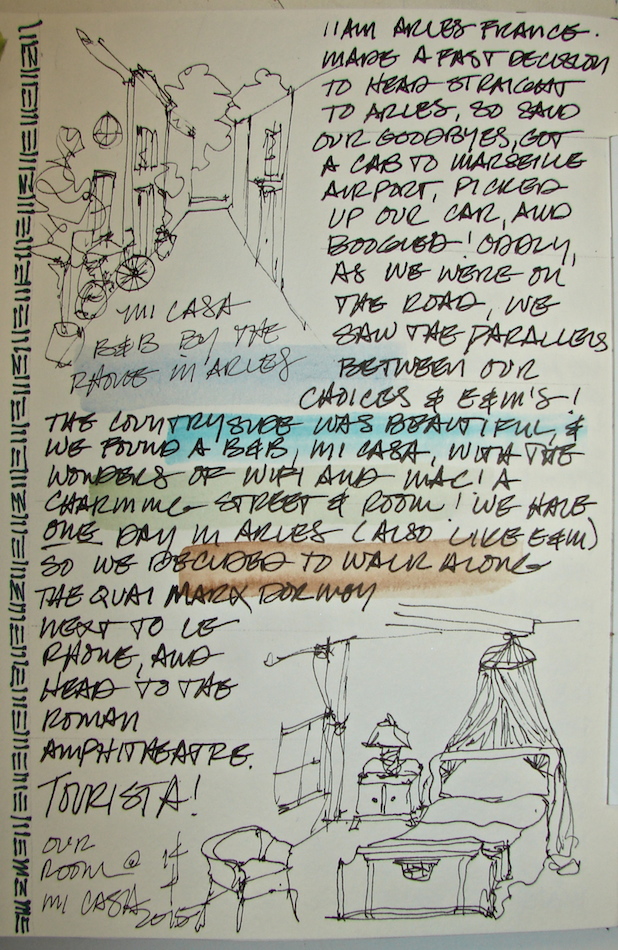 11AM ARLES FRANCE.
MADE A FAST DECISION
TO HEAD STRAIGHT
TO ARLES, SO SAID
OUR GOODBYES, GOT
A CAB TO MARSEILLE
AIRPORT, PICKED
UP OUR CAR, AND
BOOGIED! ODDLY,
AS WE WERE ON
THE ROAD, WE
SAW THE PARALLELS
BETWEEN OUR
CHOICES & E&M'S!
MI CASA
B&B BY THE
RHONE IN ARLES
THE COUNTRYSIDE WAS BEAUTIFUL, &
WE FOUND A B&B, MI CASA, WITH THE
WONDERS OF WIFI AND MAC! A
CHARMING STREET & ROOM! WE HAVE
ONE DAY IN ARLES (ALSO LIKE E&M)
SO WE DECIDED TO WALK ALONG
THE QUAI MARX DORMOY
NEXT TO LE
RHONE, AND
HEAD TO THE
ROMAN
AMPHITHEATRE.
TOURISTA!
OUR
ROOM @
MI CASA